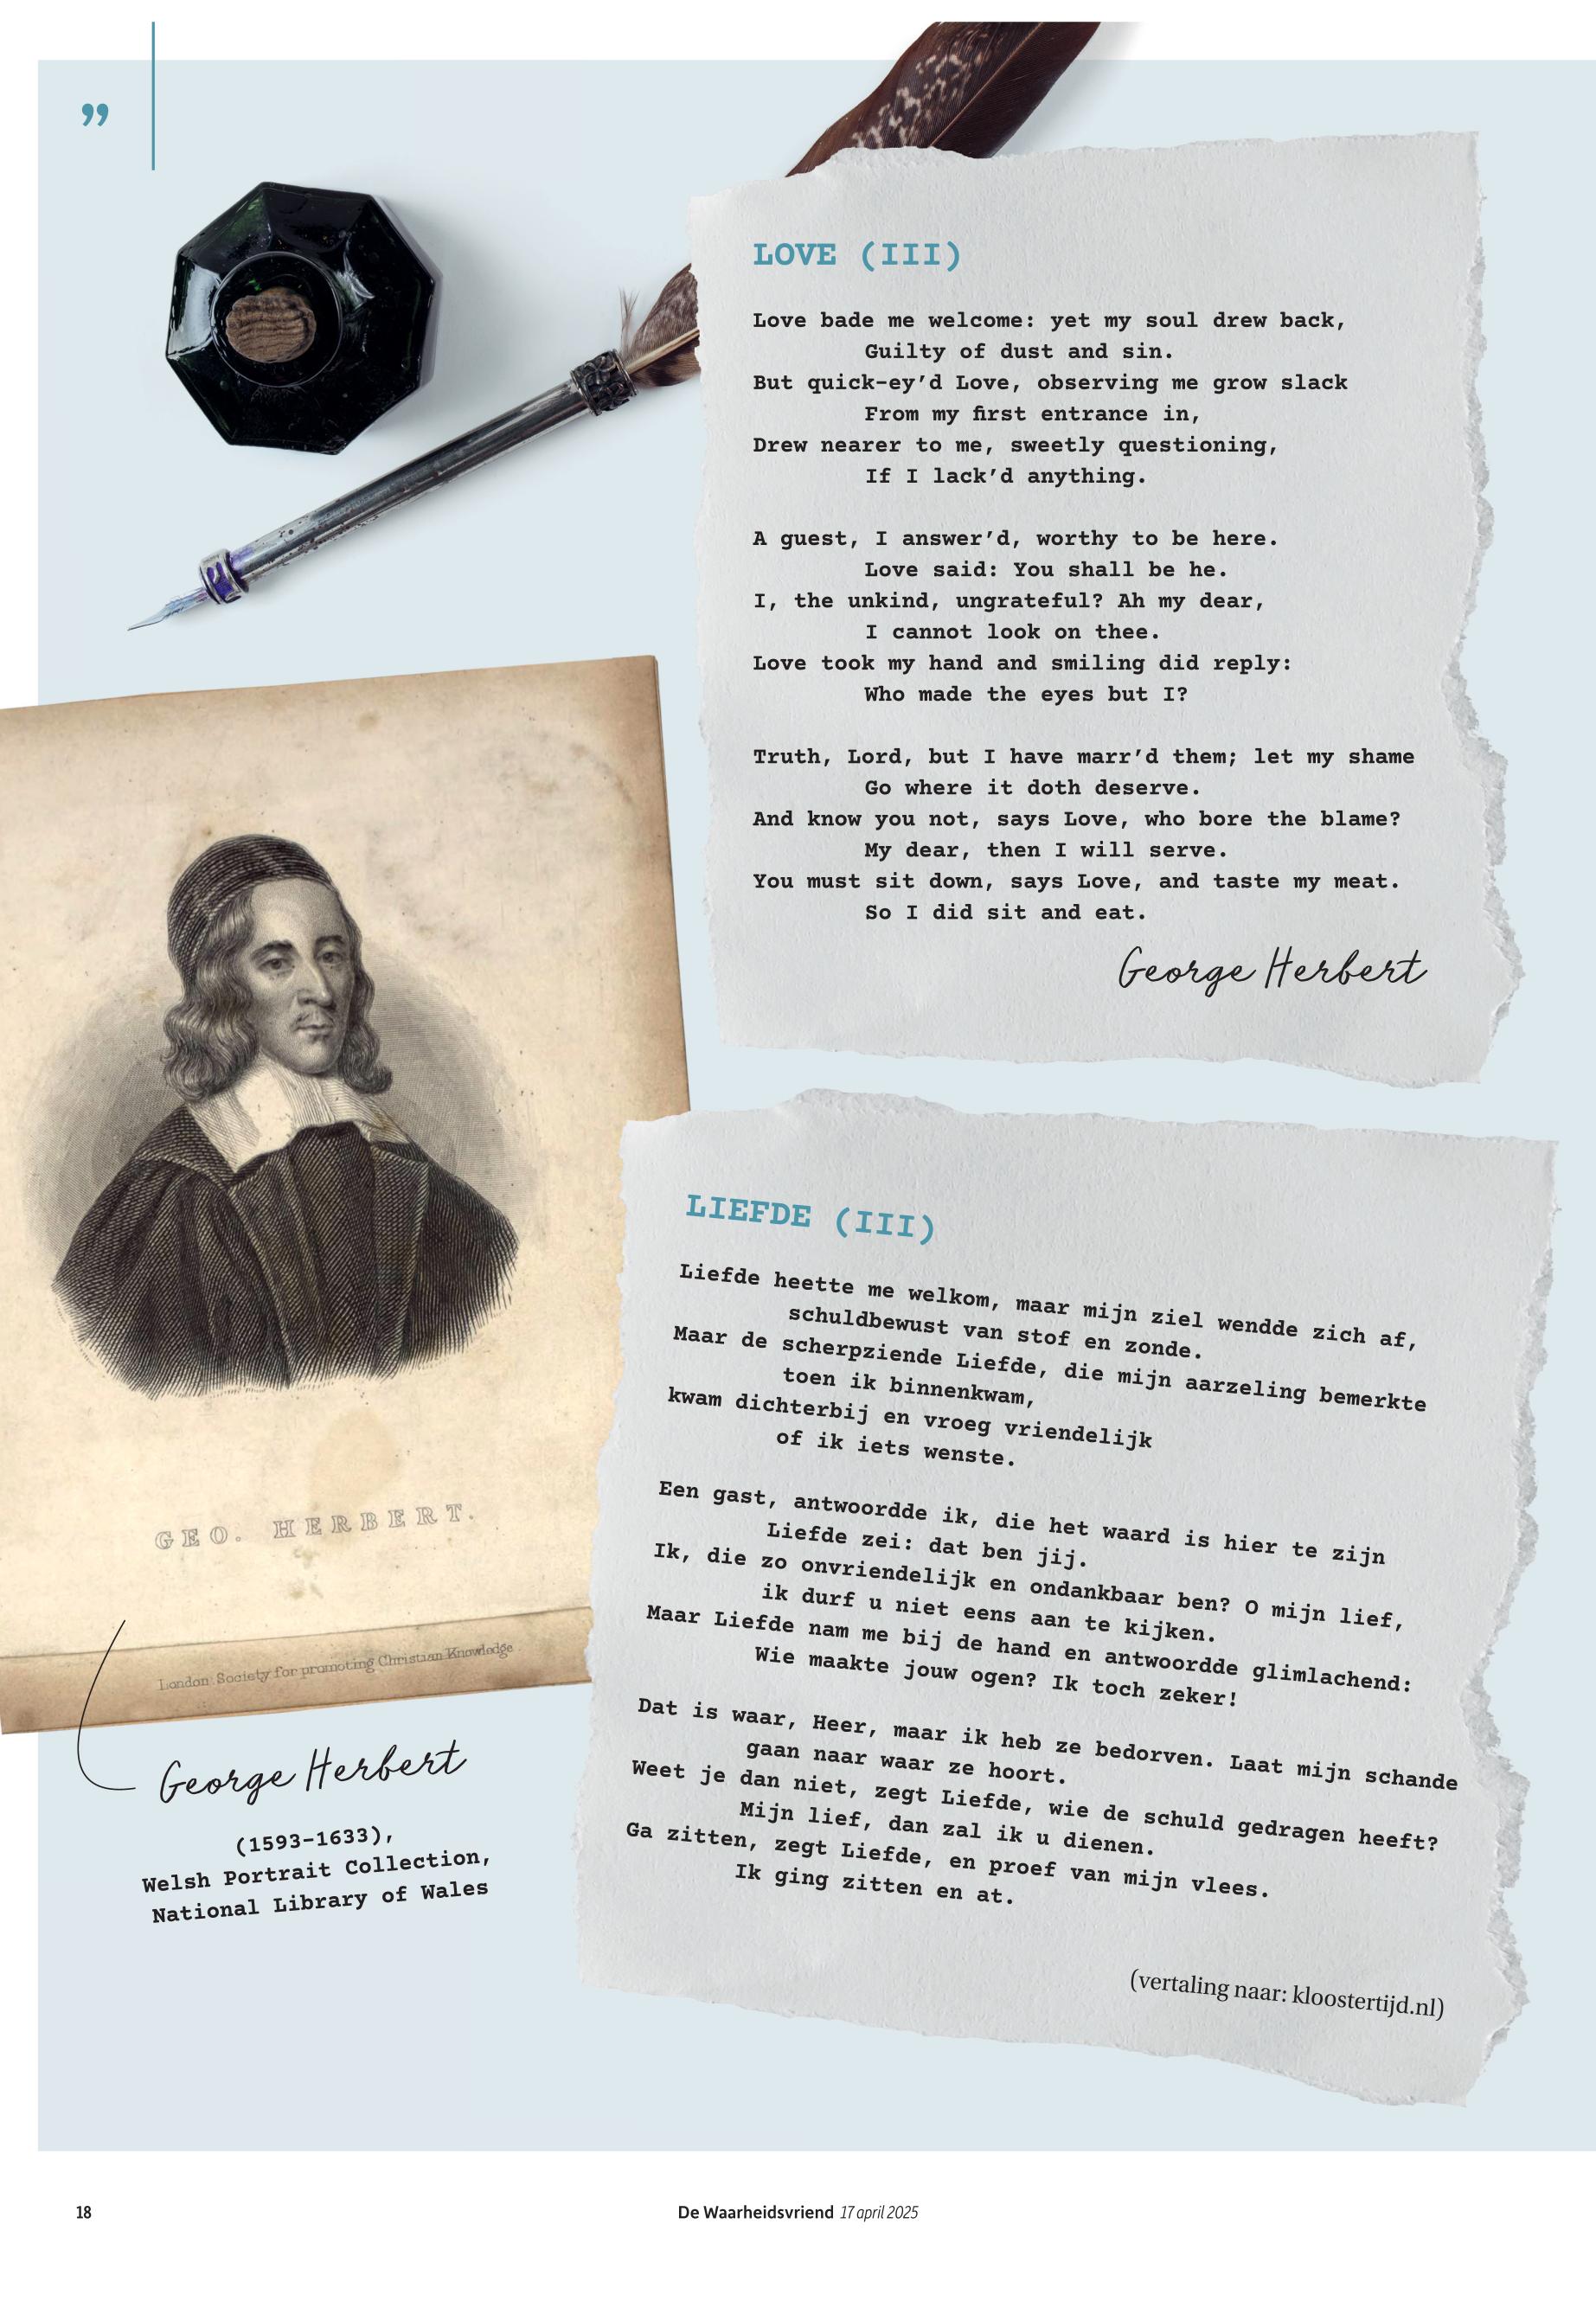 ”
LOVE (III)
Love bade me welcome: yet my soul drew back,
Guilty of dust and sin.
But quick-ey’d Love, observing me grow slack
From my first entrance in,
Drew nearer to me, sweetly questioning,
If I lack’d anything.
A guest, I answer’d, worthy to be here.
Love said: You shall be he.
I, the unkind, ungrateful? Ah my dear,
I cannot look on thee.
Love took my hand and smiling did reply:
Who made the eyes but I?
Truth, Lord, but I have marr’d them; let my shame
Go where it doth deserve.
And know you not, says Love, who bore the blame?
My dear, then I will serve.
You must sit down, says Love, and taste my meat.
So I did sit and eat.
George Herbert
LIEFDE (III)
Liefde heette me welkom, maar mijn ziel wendde zich af,
schuldbewust van stof en zonde.
Maar de scherpziende Liefde, die mijn aarzeling bemerkte
toen ik binnenkwam,
kwam dichterbij en vroeg vriendelijk
of ik iets wenste.
Een gast, antwoordde ik, die het waard is hier te zijn
Liefde zei: dat ben jij.
Ik, die zo onvriendelijk en ondankbaar ben? O mijn lief,
ik durf u niet eens aan te kijken.
Maar Liefde nam me bij de hand en antwoordde glimlachend:
Wie maakte jouw ogen? Ik toch zeker!
Dat is waar, Heer, maar ik heb ze bedorven. Laat mijn schande
gaan naar waar ze hoort.
Weet je dan niet, zegt Liefde, wie de schuld gedragen heeft?
Mijn lief, dan zal ik u dienen.
Ga zitten, zegt Liefde, en proef van mijn vlees.
Ik ging zitten en at.
(vertaling naar: kloostertijd.nl)
GEO. HERBERT.
London Society for promoting Christian Knowledge
George Herbert
(1593-1633),
Welsh Portrait Collection,
National Library of Wales
18
De Waarheidsvriend 17 april 2025